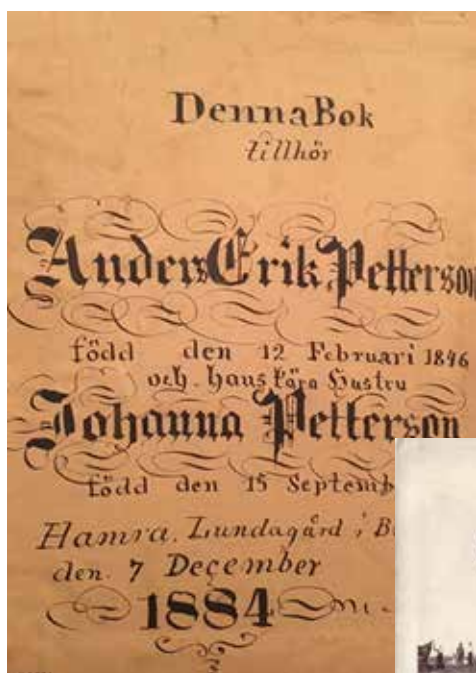 Denna Bok
tillhör
Anders Erik Petterson
född den 12 Februari 1846
och hans kära Hustru
Johanna Petterson
född den 15 Septemb
Hamra, Lundagård i B
den 7 December
1884